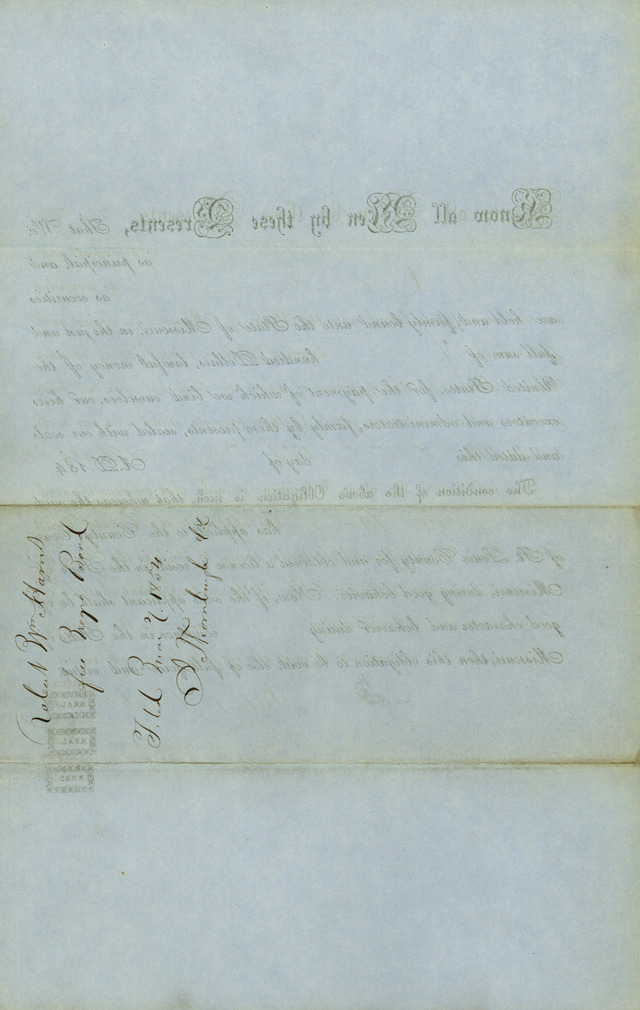 Robert Wm Harris
free Negro Bond
Fild 7. 1854
S. D. Ck
Know all Men by these Presents, That We
as principal, and
as securities
are held and firmly bound unto the State of Missouri, in the just and
full sum of hundred Dollars, lawful money of the
United States, for the payment of which we bind ourselves, our heirs
executors and administrators, firmly by these presents, sealed with our seals
and dated this day of A.D. 184
The condition of the above Obligation is such, that whereas the
has applied to the County
of St. Louis County for and obtained a license to reside in the
Missouri, during good behavior: Now, if the said applicant shall be
good character and behavior during in the
Missouri, then this obligation to be void, else of full
SEAL
SEAL
SEAL